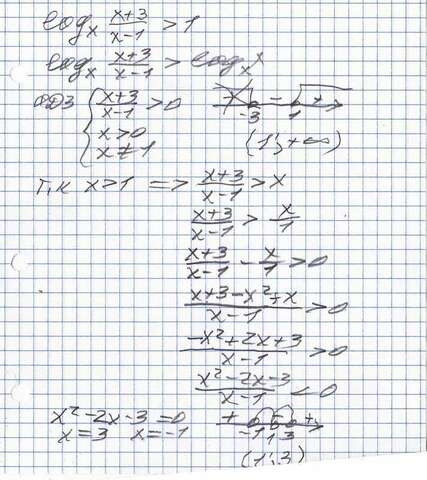 log_x (x+3)/(x-1) > 1
log_x (x+3)/(x-1) > log_x x
ОДЗ { (x+3)/(x-1) > 0
x > 0
x ≠ 1
+ - +
-3 1
(1; +∞)
т.к x > 1 => (x+3)/(x-1) > x
(x+3)/(x-1) > x/1
(x+3)/(x-1) - x/1 > 0
(x+3-x²+x)/(x-1) > 0
(-x²+2x+3)/(x-1) > 0
(x²-2x-3)/(x-1) < 0
x²-2x-3=0
x=3 x=-1
+ - +
-1 1 3
(1;3)